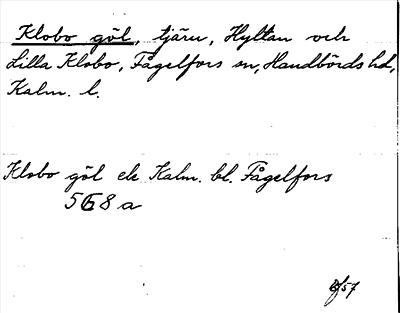 Klobo göl, tjärn, Hyltan och
Lilla Klobo, Fågelfors sn, Handbörds hd,
Kalm. l.
Klobo göl ek Kalm. bl. Fågelfors
568 a
57